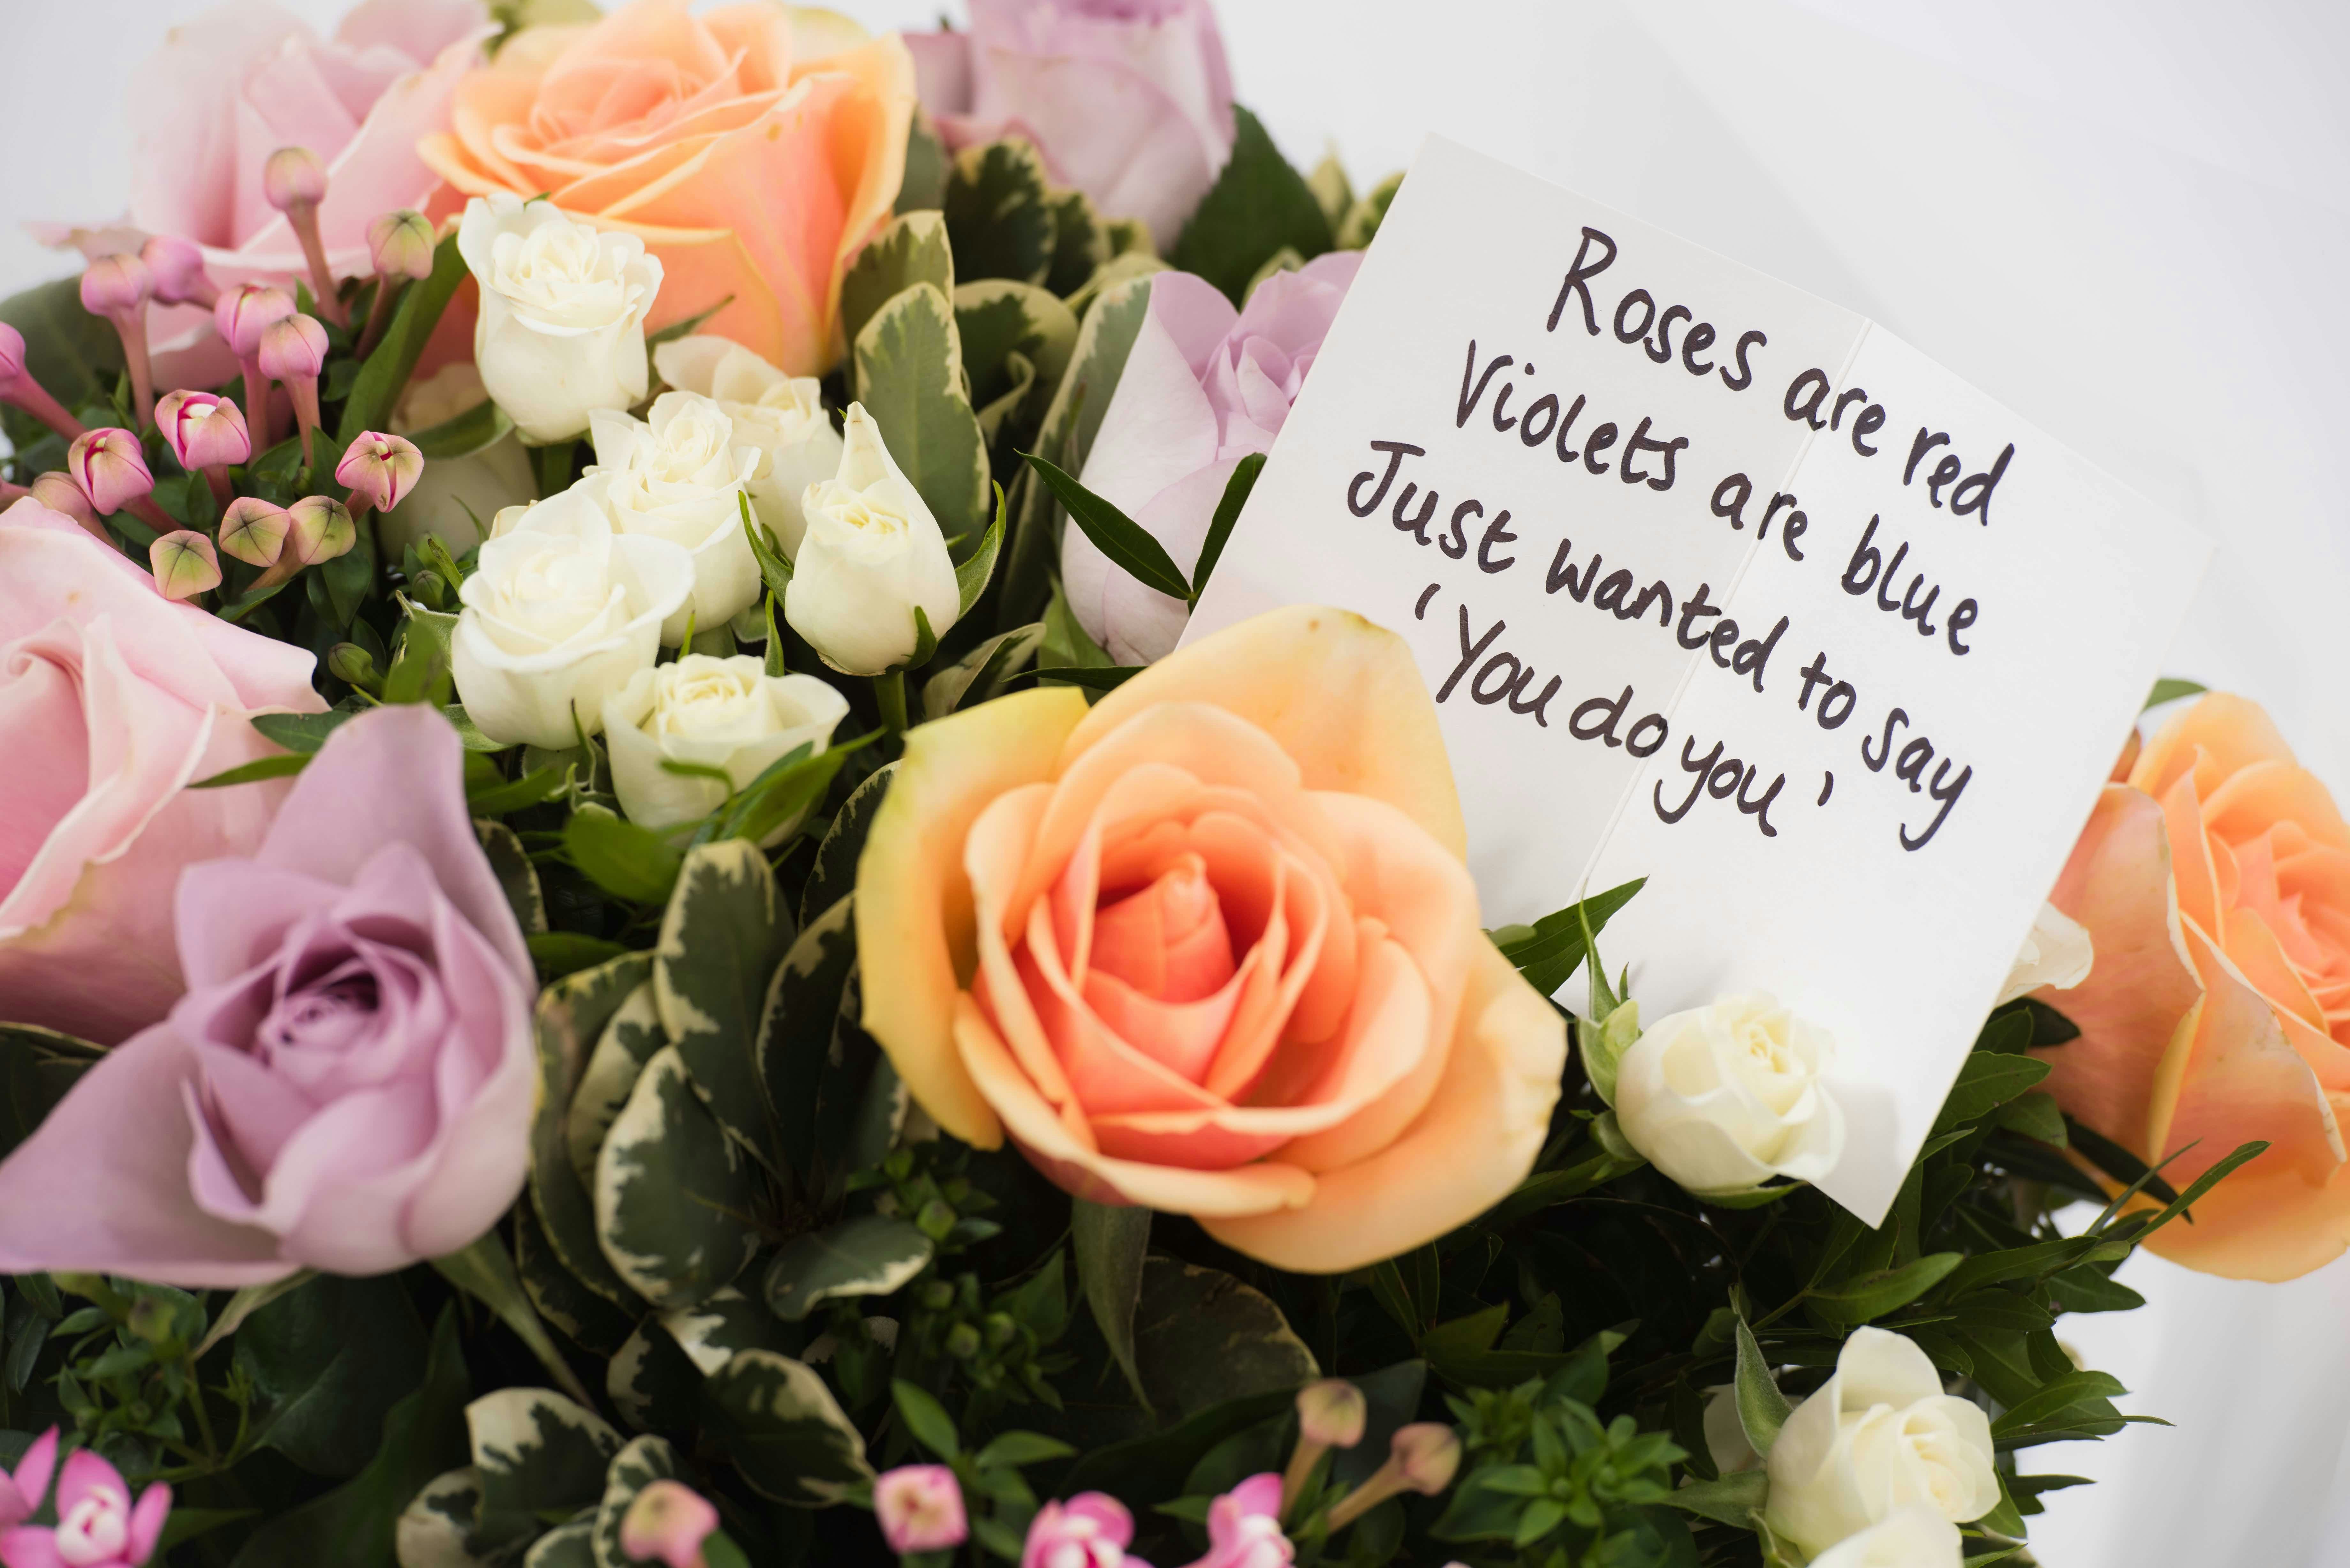 Roses are red
Violets are blue
Just wanted to say
'You do you'